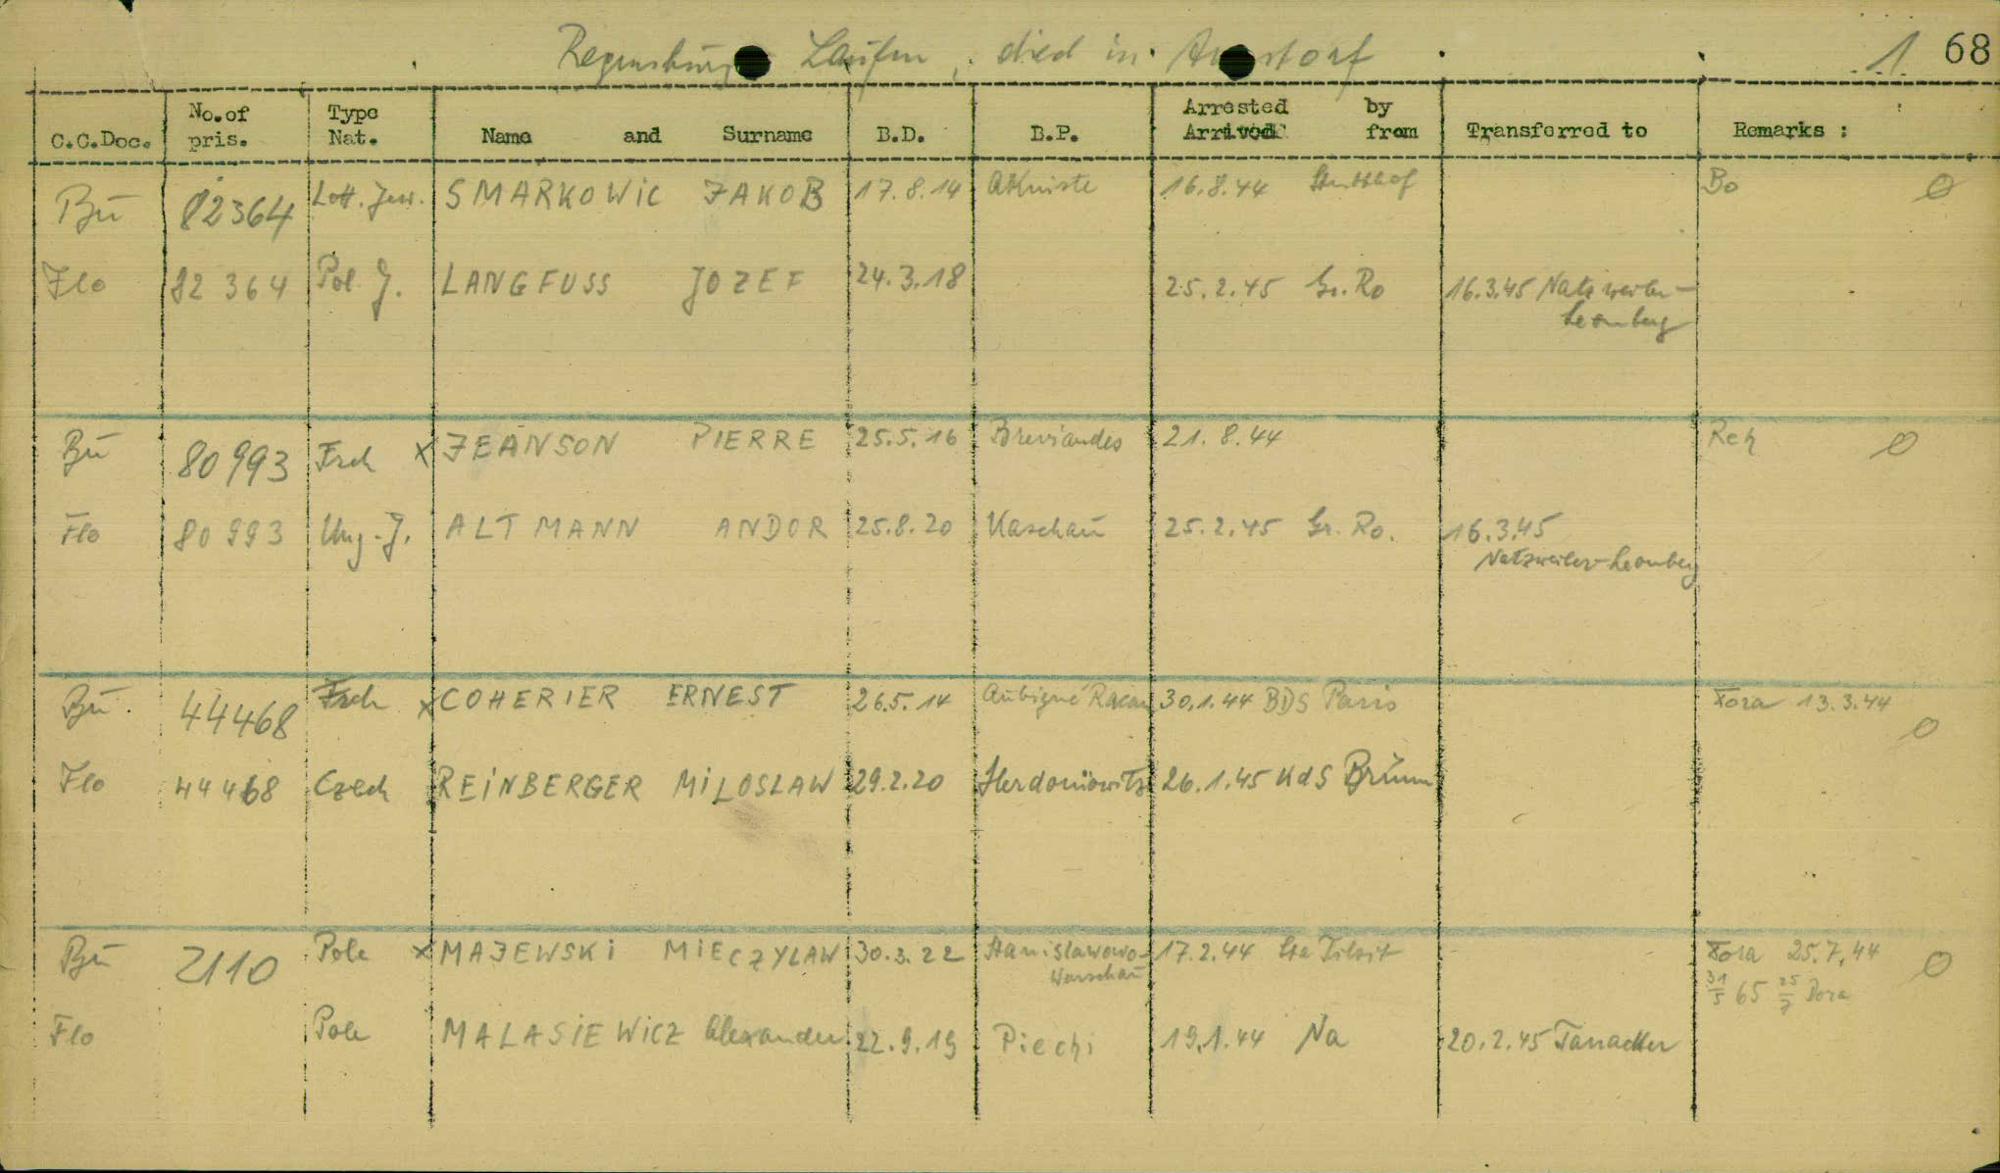 Regensburg Laufen, died in A storf 1 68
C.C.Doc. No.of pris. Type Nat. Name and Surname B.D. B.P. Arrested by Arrived from Transferred to Remarks :
Bu 82364 Lett. Jew. SMARKOWIC JAKOB 17.8.14 Akniste 16.8.44 Stutthof Bo
Flo 82 364 Pol. J. LANGFUSS JOZEF 24.3.18 25.2.45 Gr. Ro 16.3.45 Natzweiler-
Leonberg
Bu 80993 Frch x JEANSON PIERRE 25.5.16 Breviandes 21.8.44 Reh
Flo 80993 Ung.-J. ALTMANN ANDOR 25.8.20 Kaschau 25.2.45 Gr. Ro. 16.3.45
Natzweiler-Leonberg
Bu. 44468 Frch x COHERIER ERNEST 26.5.14 Aubigné Racan 30.1.44 BDS Paris 13.3.44
Flo 44468 Czech REINBERGER MILOSLAW 29.2.20 26.1.45 KdS Brünn
Bu 2110 Pole x MAJEWSKI MIECZYLAW 30.3.22 Stanislawowo- 17.2.44 Sta Tilsit 25.7.44
Warschau 31/5 65 25/7 Dora
Flo Pole MALASIEWICZ Alexander 22.9.19 Piechi 19.1.44 Na 20.2.45